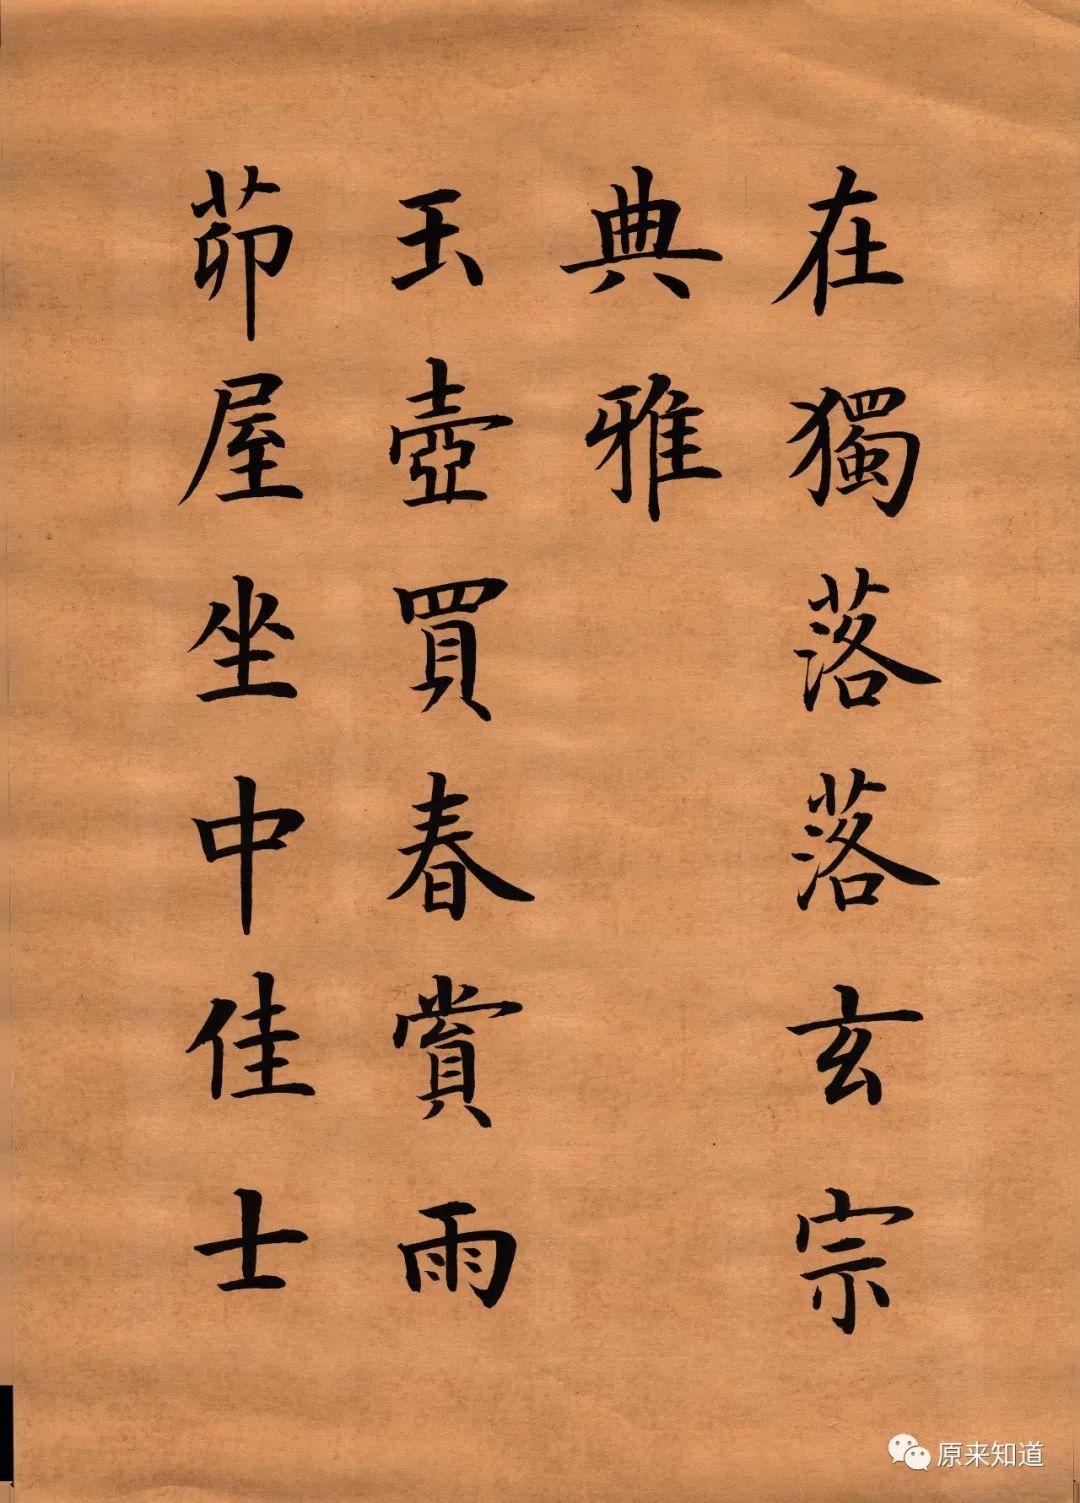 在獨落落玄宗
典雅
玉壺買春賞雨
茆屋坐中佳士
原来知道